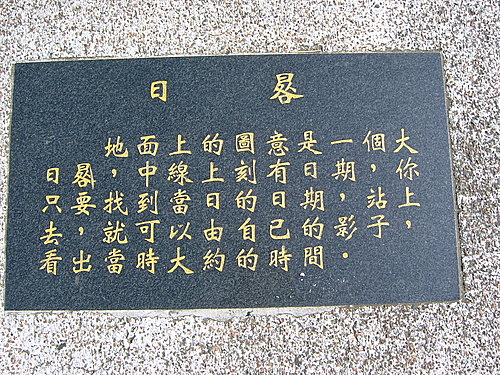 日晷
地面上的圖意是一個大
日晷，中線上刻有日期，你
只要找到當日的日期，站上
去，就可以由自己的影子，
看出當時大約的時間。